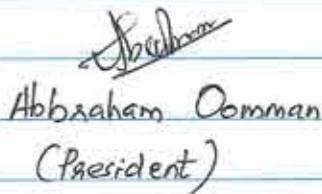 Abbraham Oomman
(President)